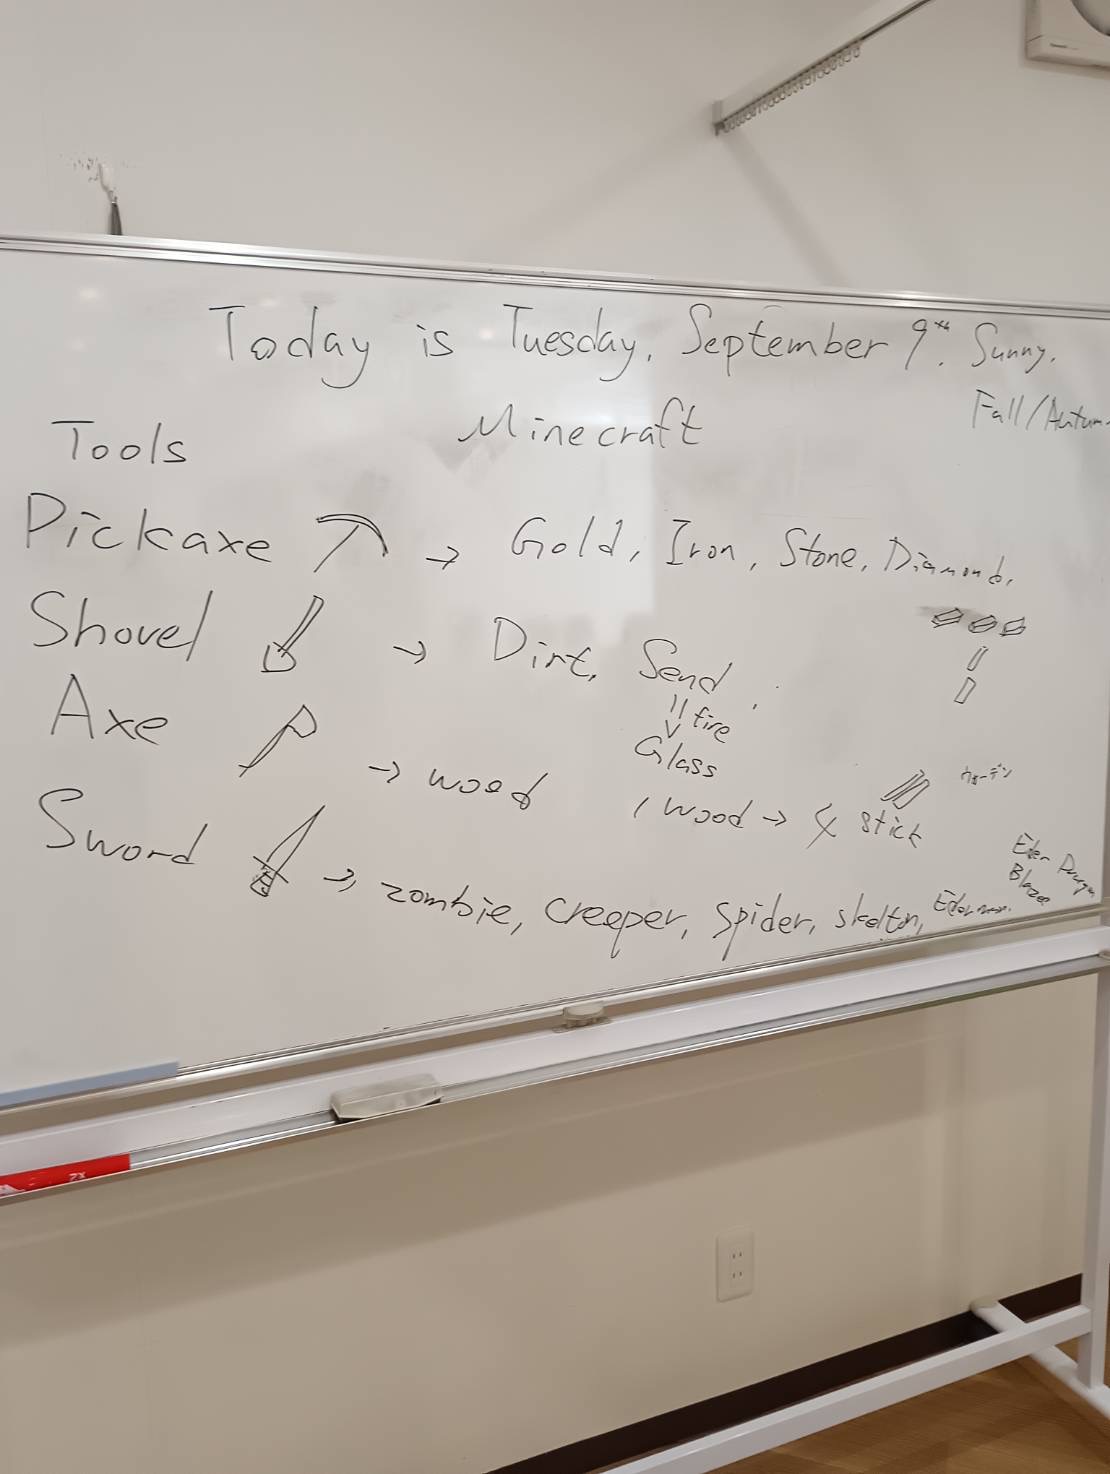 Today is Tuesday, September 9th. Sunny.
Fall/Autum
Minecraft
Tools
Pickaxe → Gold, Iron, Stone, Diamond,
Shovel → Dirt, Send
fire
Glass
Axe → wood
1 wood → 4 stick
ウォーデン
Sword → zombie, creeper, spider, skelton,
Blaze